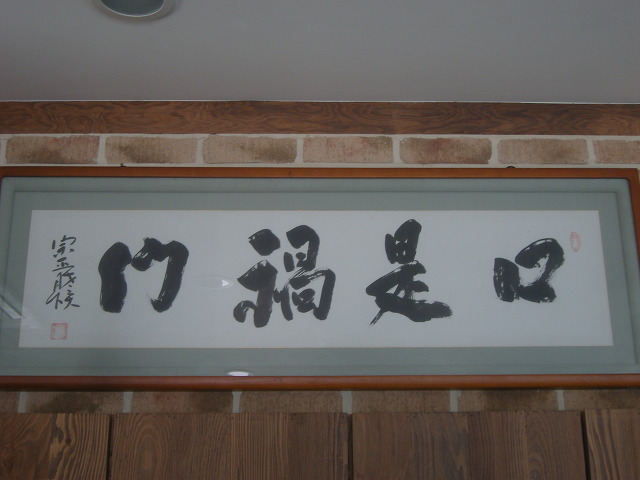 口是禍門